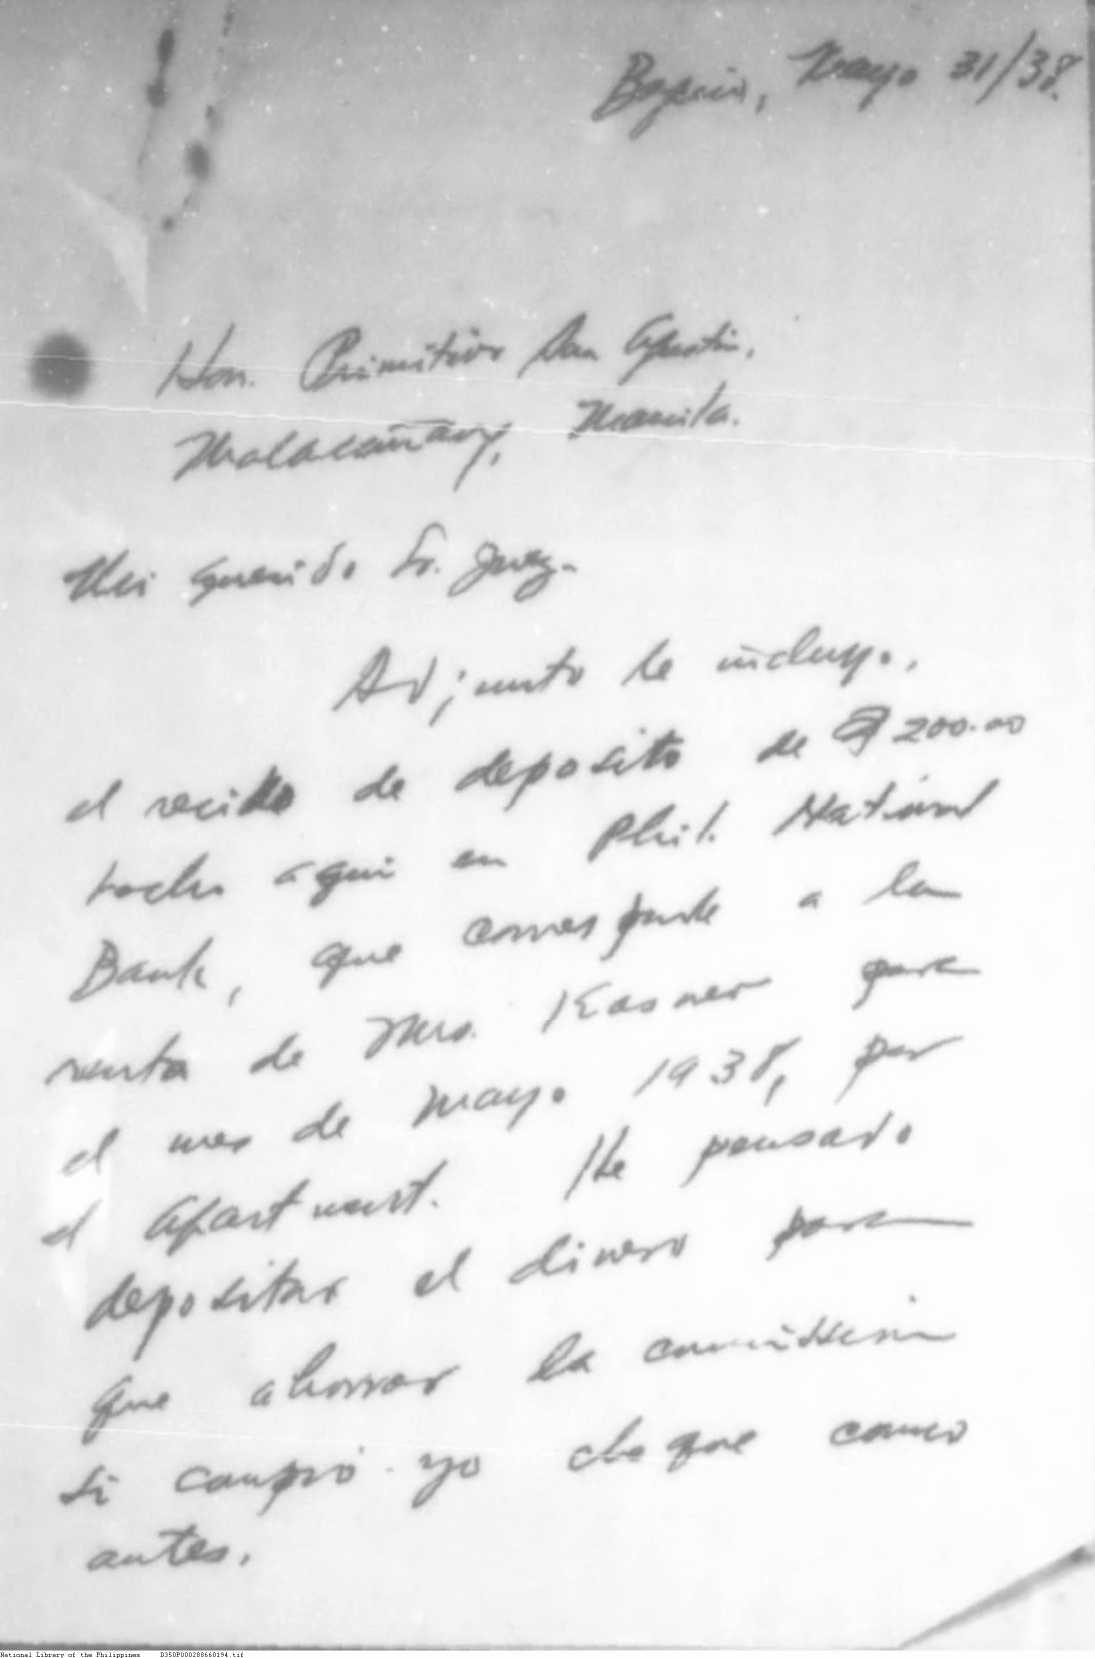 Baguio, Mayo 31/38.
Hon. Primitivo San Agustin,
Malacañang, Manila.
Mi querido Sr. Juez-
Adjunto le incluyo,
el recibo de deposito de ₱200.00
hecho aqui en Phil. National
Bank, que corresponde a la
renta de Mrs. Kasner para
el mes de mayo 1938, por
el Apartment. He pensado
depositar el dinero para
que ahorrar la commission
si compro yo cheque como
antes.
National Library of the Philippines D350P000288660194.tif